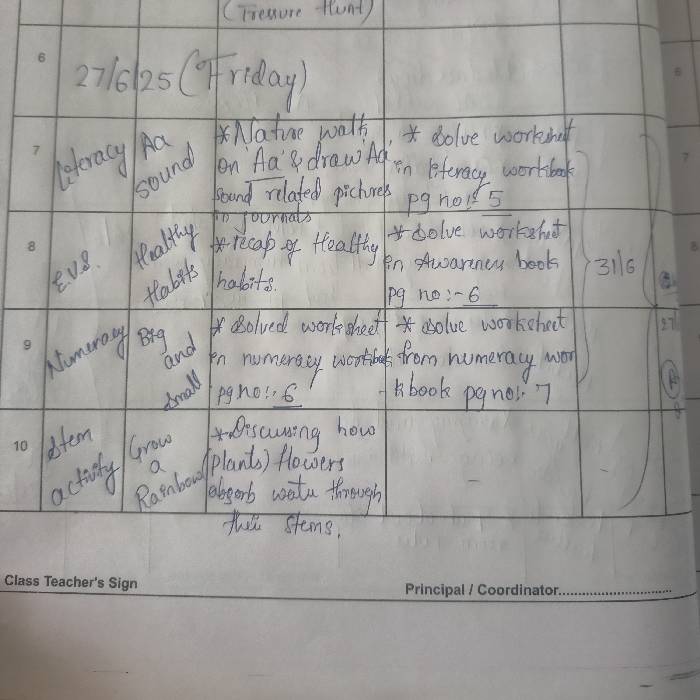 (Tressure Hunt)
6
27/6/25 (Friday)
7
Literacy
Aa
sound
*Nature walk
on 'Aa' & draw 'Aa'
sound related pictures
in journals
* Solve worksheet
in literacy workbook
pg no:- 5
8
E.V.S.
Healthy
Habits
*recap of Healthy
habits.
* Solve worksheet
in Awareness book
pg no:- 6
31/6
9
Numeracy
Big
and
small
* Solved worksheet
in numeracy workbook
pg no:- 6
* Solve worksheet
from numeracy wor
-kbook pg no:- 7
10
Stem
activity
Grow
a
Rainbow
*Discussing how
(plants) flowers
absorb water through
their stems.
-
-
Class Teacher's Sign
Principal / Coordinator..............................